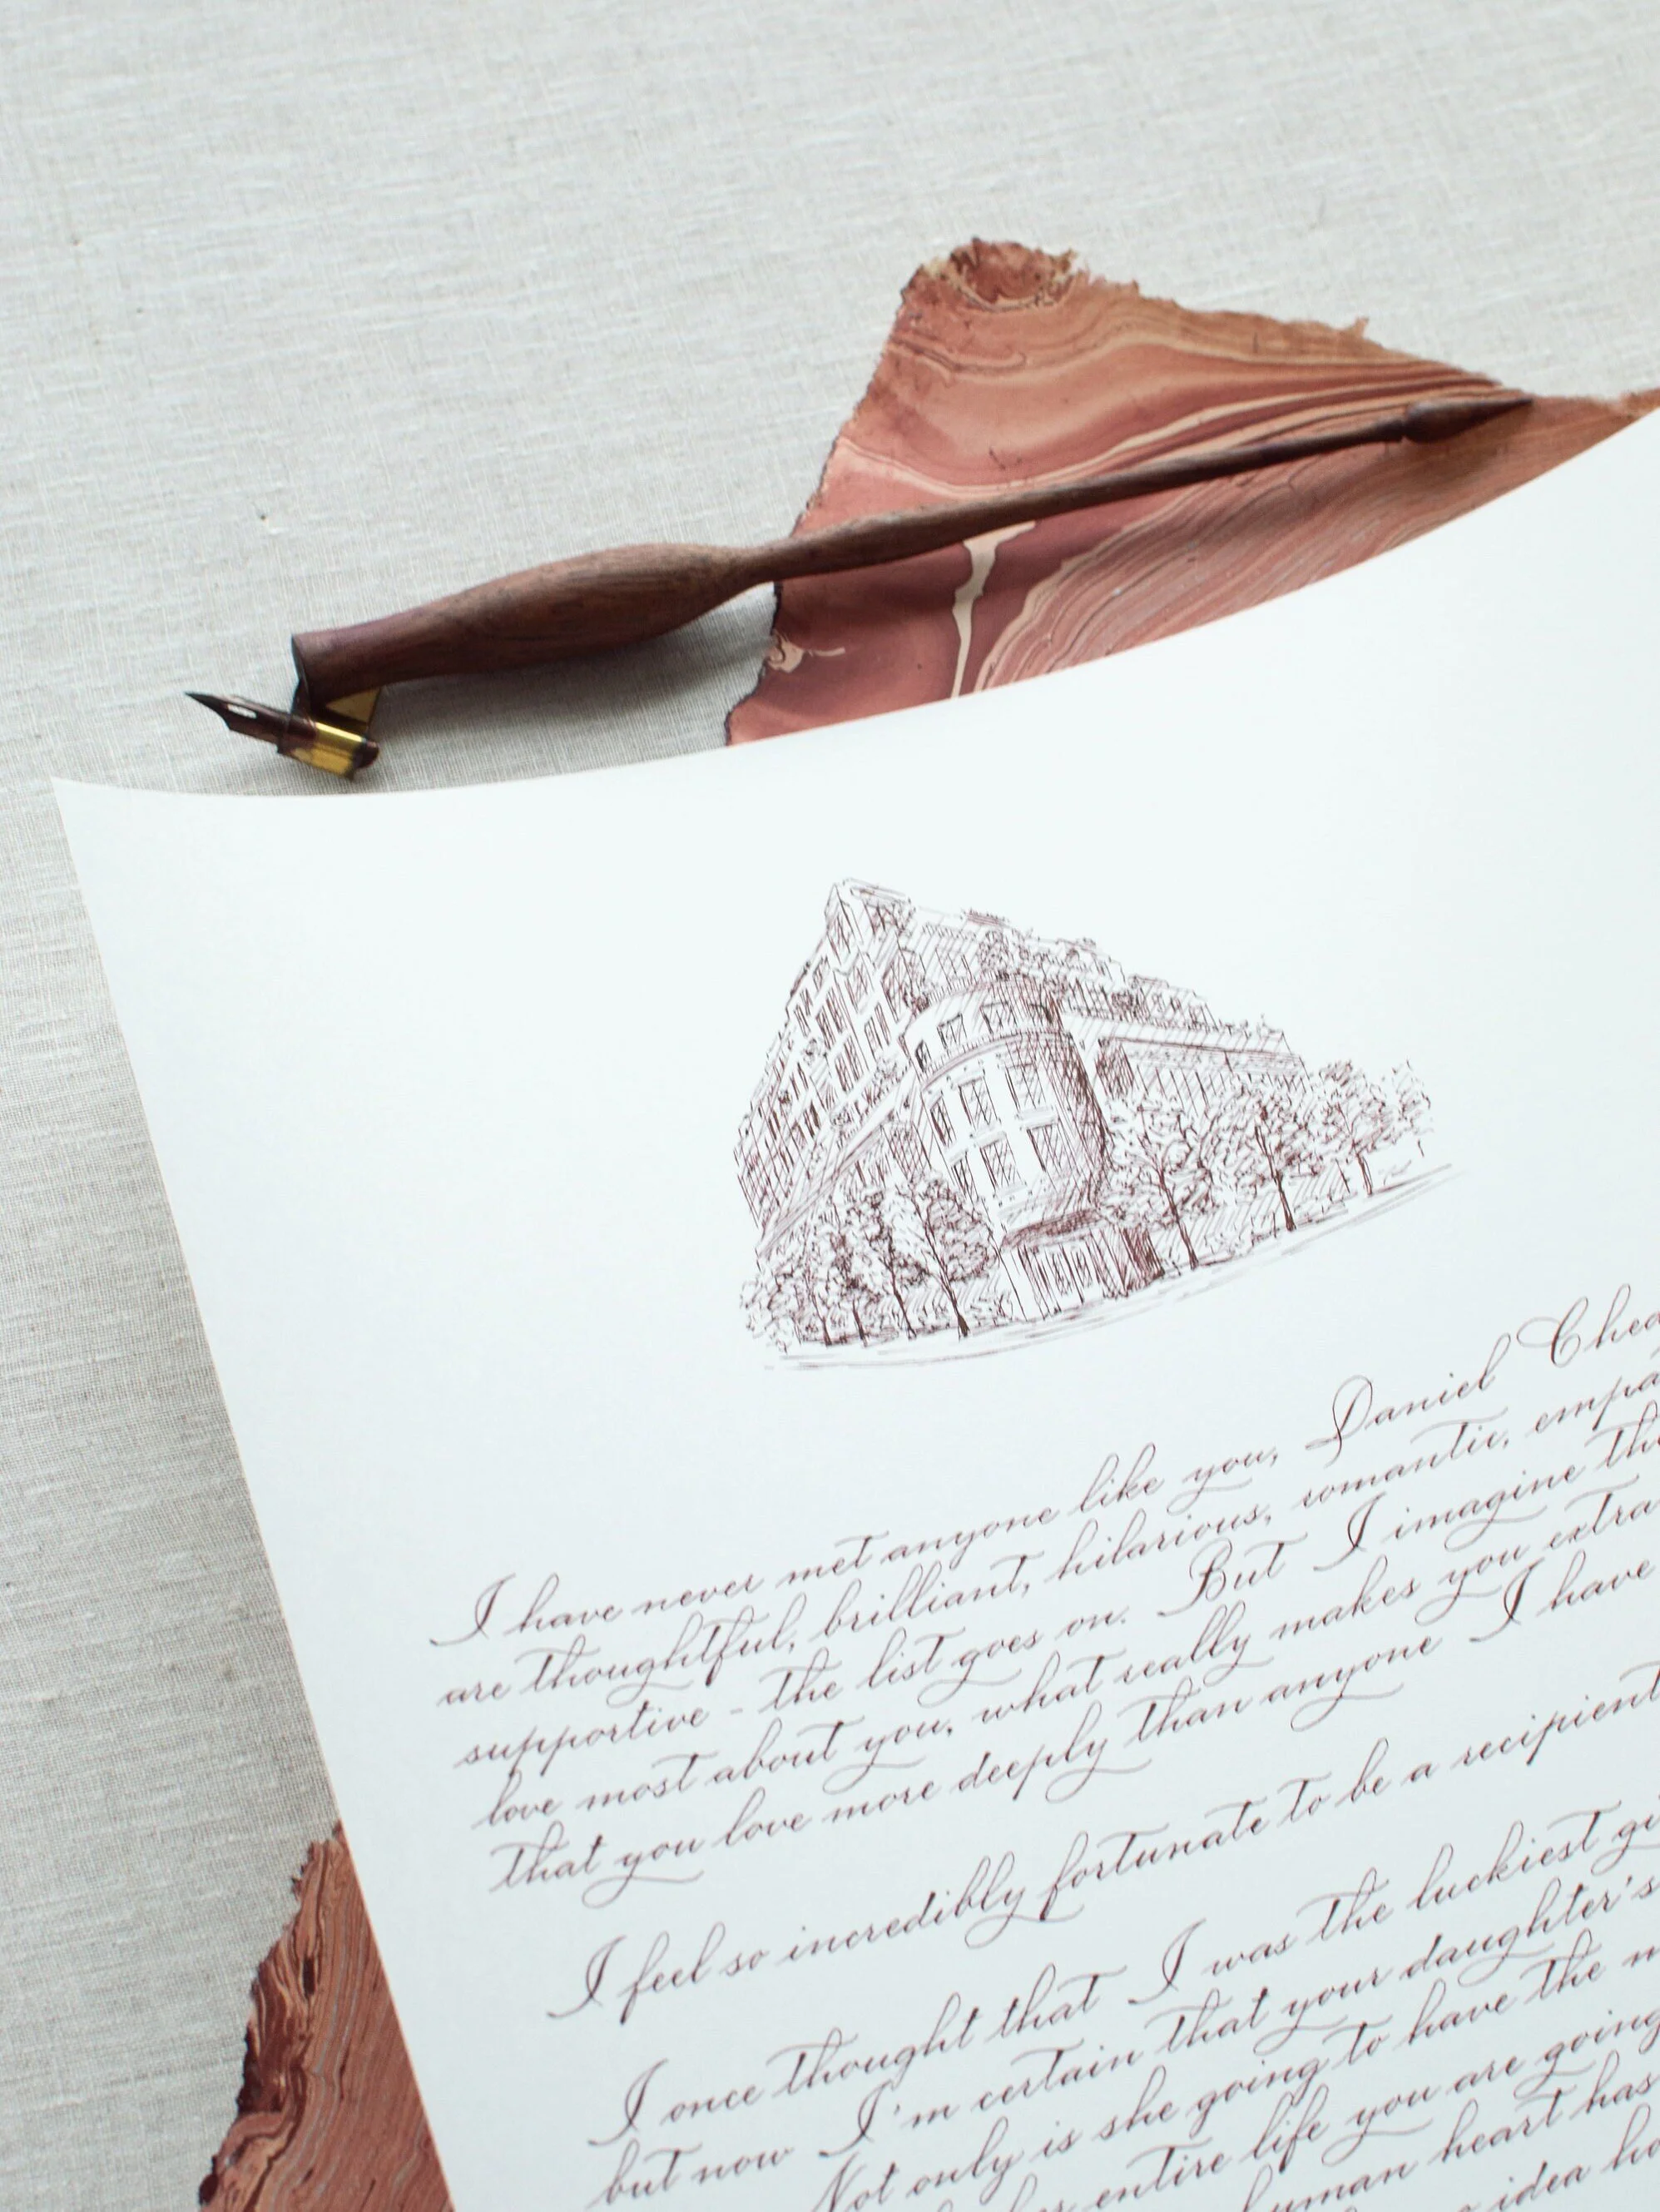 I have never met anyone like you, Daniel
are thoughtful, brilliant, hilarious, romantic,
supportive - the list goes on. But I imagine
love most about you, what really makes you
that you love more deeply than anyone I have
I feel so incredibly fortunate to be a recipient
I once thought that I was the luckiest
but now I'm certain that your daughter's
Not only is she going to have the
entire life you are going
human heart has
idea